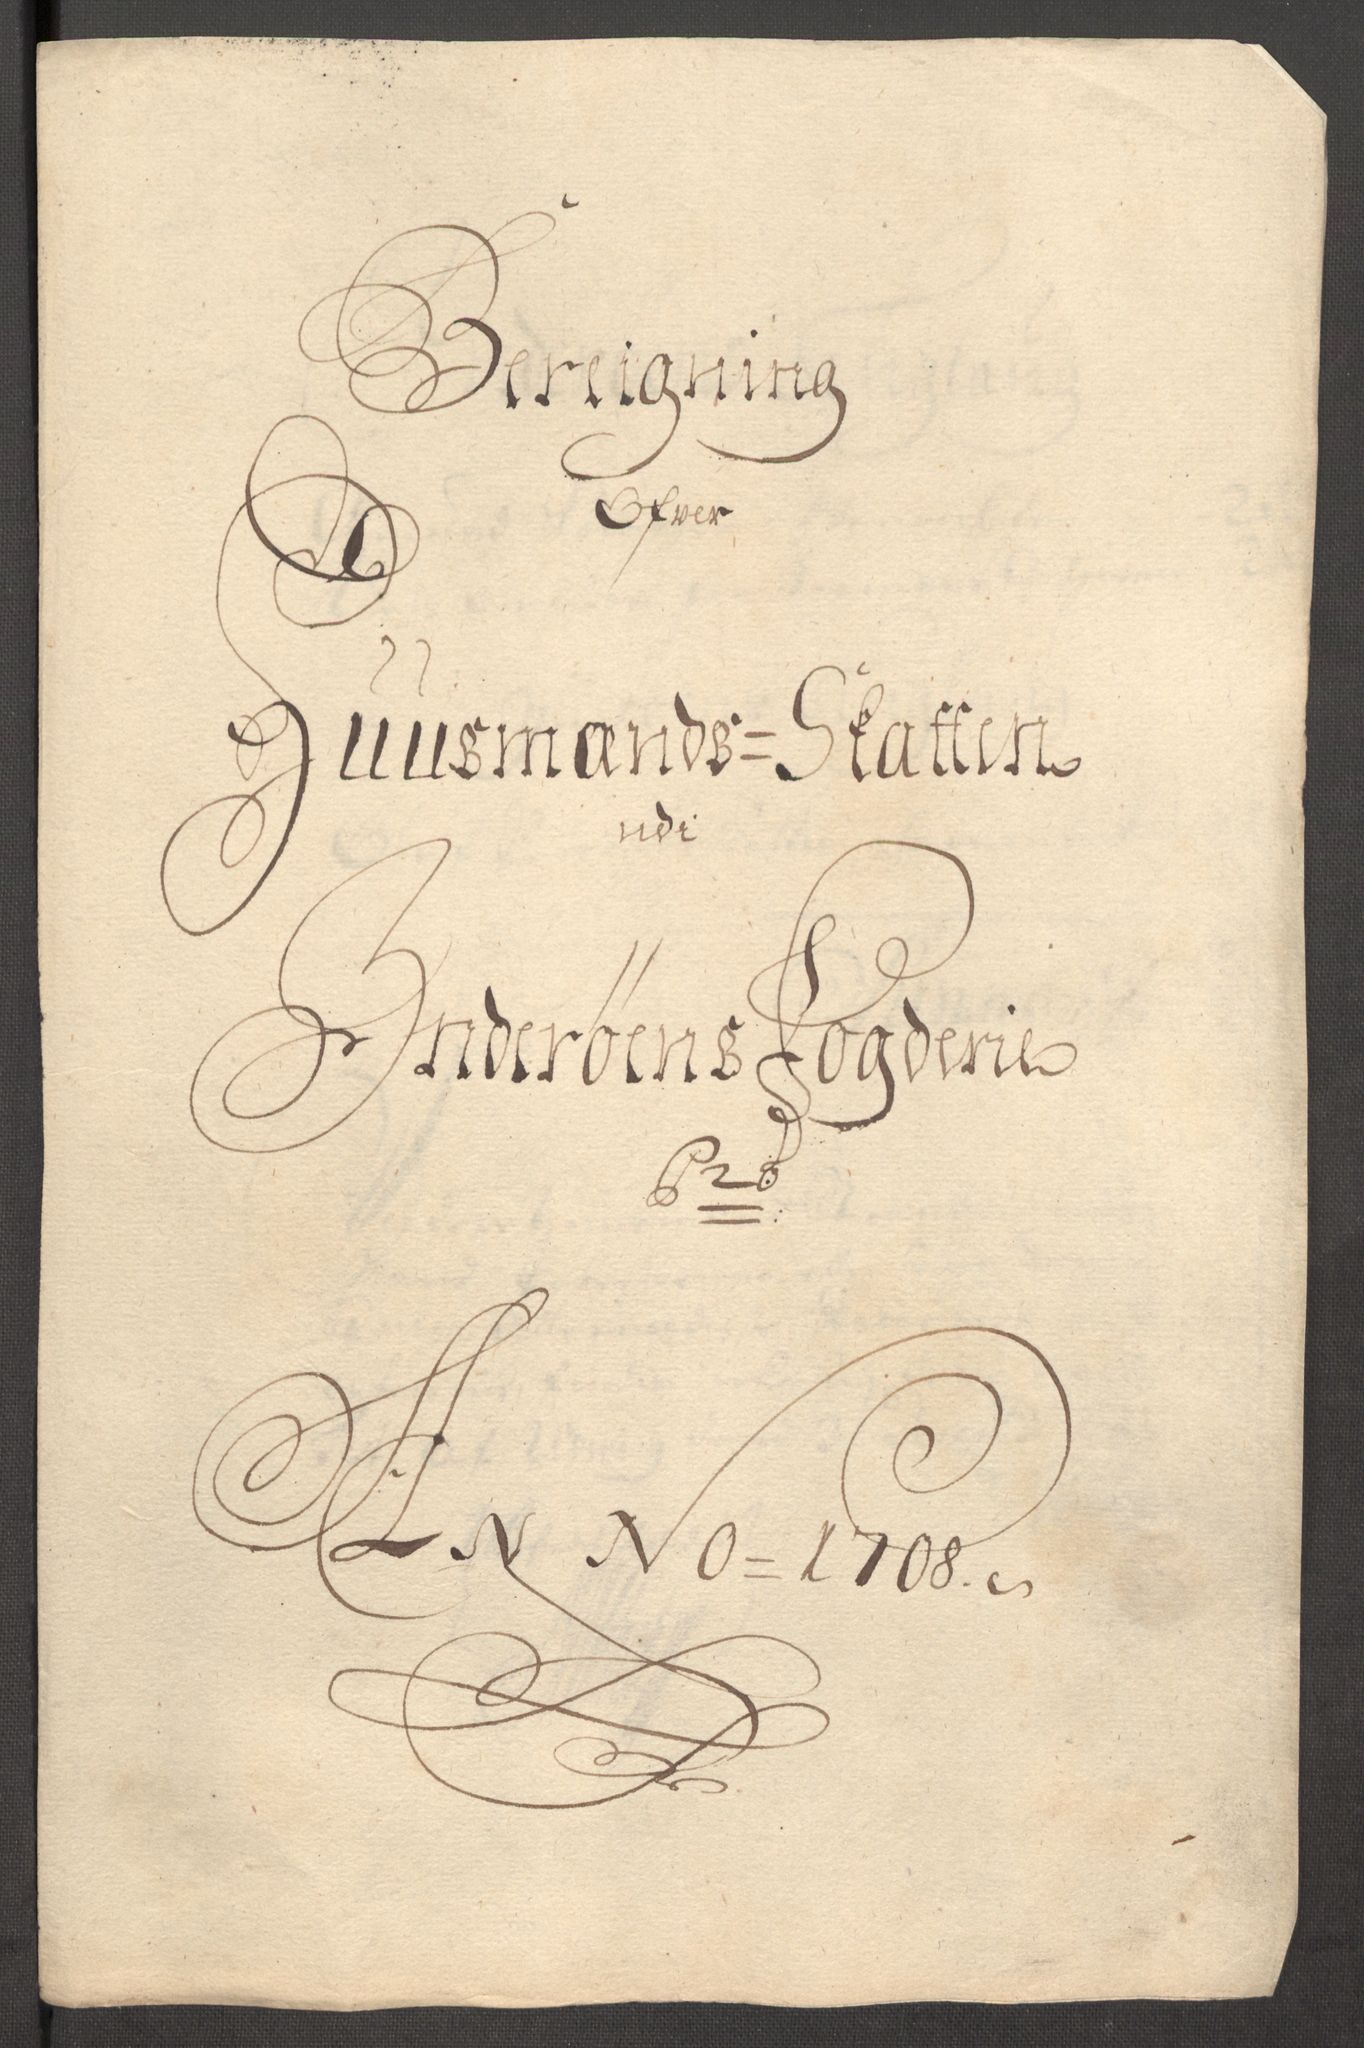 Bereigning
Ofver
Huusmands=Skatten
udi
Inderöens Fogderie
pro
ANNO=1708.